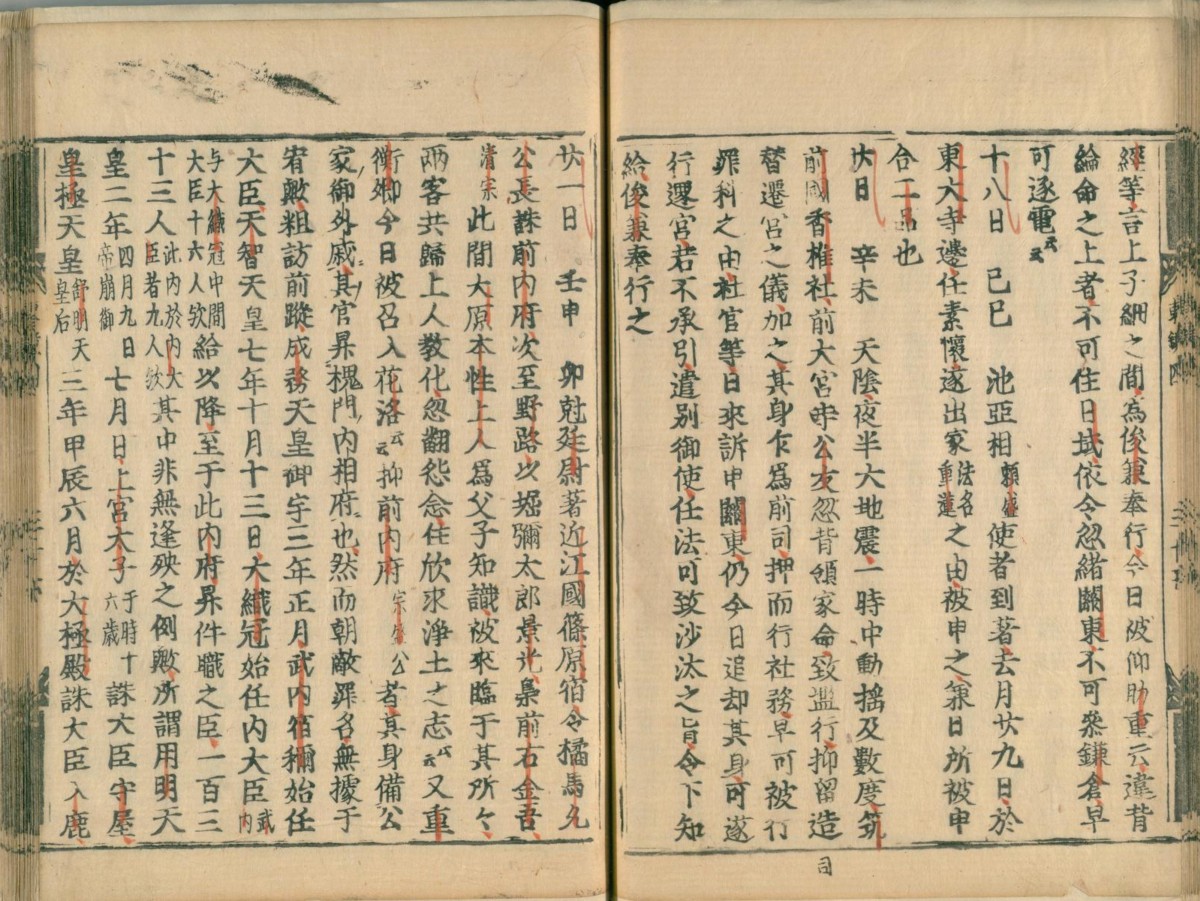 經等言上子細之間爲俊兼奉行今日被仰昉重云違背
綸命之上者不可住日域依令忽緒關東不可參鎌倉早
可逐電云云
十八日　己巳　池亞相頼盛使者到著去月廿九日於
東大寺邊任素懷遂出家法名重蓮之由被申之兼日所被申
合二品也
廿日　辛未　天陰夜半大地震一時中動搖及數度筑
前國香椎社前大宮司公友忽背領家命致濫行抑留造
替遷宮之儀加之其身乍爲前司押而行社務早可被行
罪科之由社官等日來訴申關東仍今日追却其身可遂
行遷宮若不承引遣別御使任法可致沙汰之旨令下知
給俊兼奉行之
司
東鑑四
廿一日　壬申　卯尅廷尉著近江國篠原宿令橘馬允
公長誅前内府次至野路以堀彌太郎景光梟前右金吾
清宗此間大原本性上人爲父子知識被來臨于其所々
兩客共歸上人教化忽翻怨念住欣求淨土之志云云又重
衡卿今日被召入花洛云云抑前内府宗盛公者其身備公
家御外戚其官昇槐門内相府也然而朝敵罪名無據于
宥歟粗訪前蹤成務天皇御宇三年正月武内宿禰始任
大臣天智天皇七年十月十三日大織冠始任内大臣武内
与大織冠中間大臣十六人欤給以降至于此内府昇件職之臣一百三
十三人此内於内大臣者九人欤其中非無逢殃之例歟所謂用明天
皇二年四月九日帝崩御七月日上宮太子于時十六歳誅大臣守屋
皇極天皇舒明天皇后三年甲辰六月於大極殿誅大臣入鹿